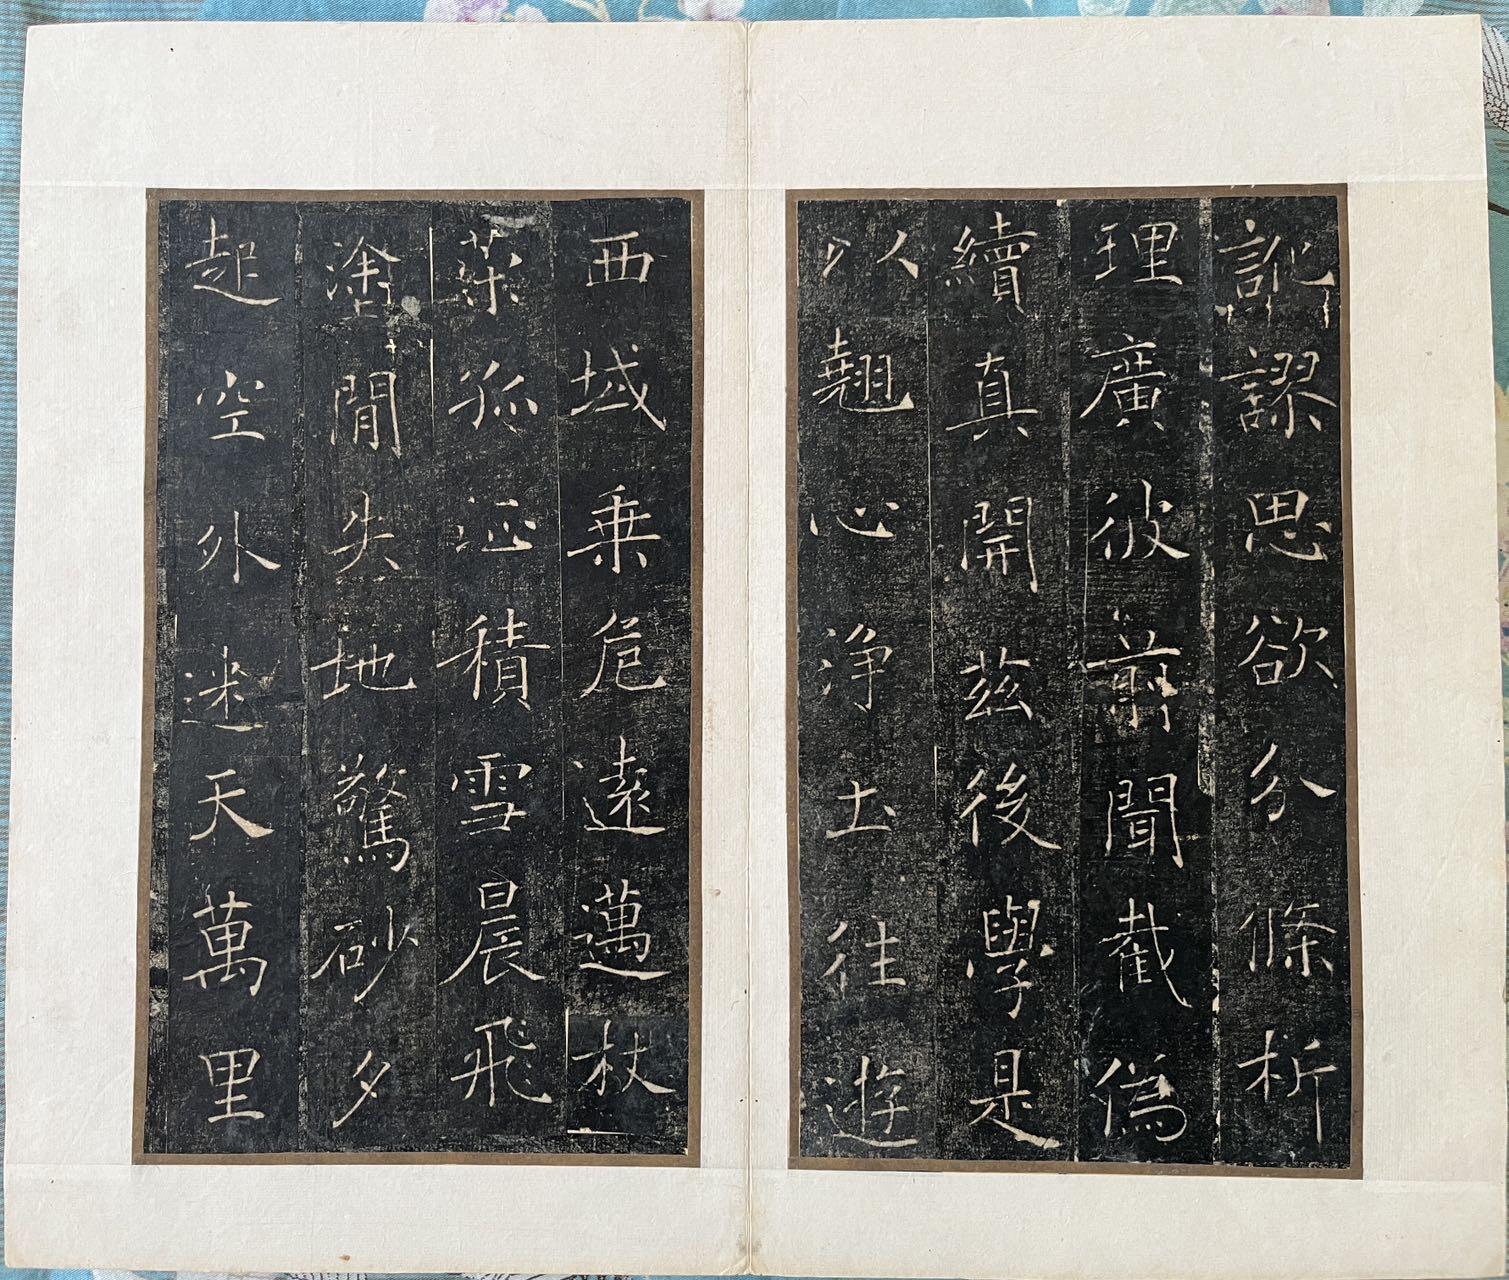 訛謬思欲分條析
理廣彼前聞截偽
續真開茲後學是
以翹心淨土往遊
西域乗危遠邁杖
策孤征積雪晨飛
塗閒失地驚砂夕
起空外迷天萬里